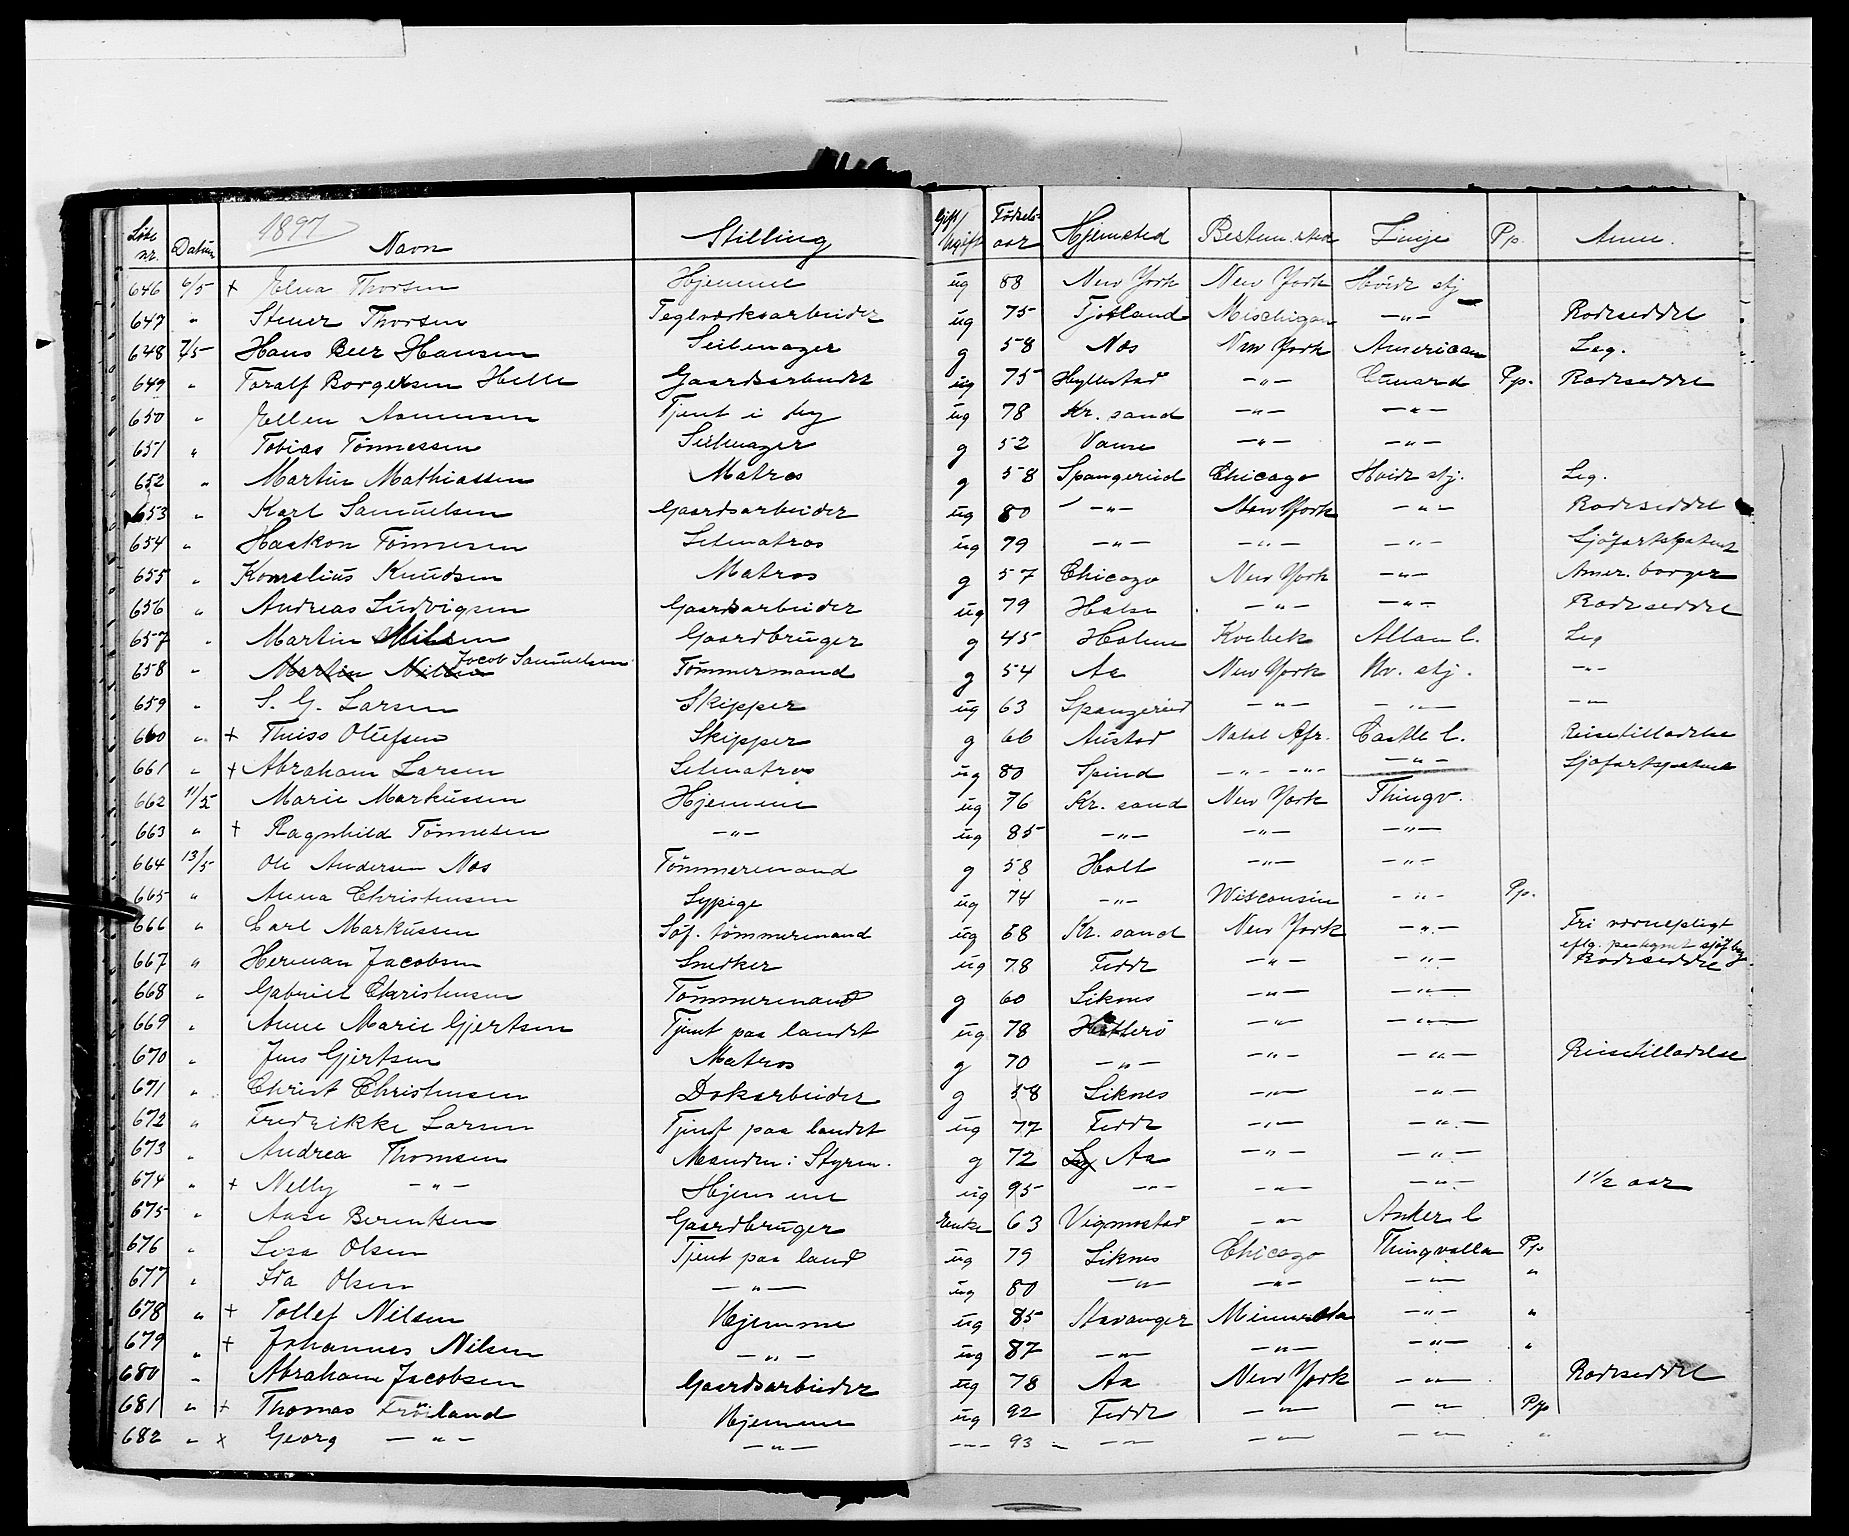 1897
Løbe nr. Datum Navn Stilling Gift/Ugift Fødsels aar Hjemsted Bestem. sted Linje Pp. Anm.
646 6/5 + Elna Thorsen Hjemme ug 88 New York New York Hvide stj
647 " Stener Thorsen Teglværksarbeider ug 75 Tjotland Mischigan —"— Rodeseddel
648 7/5 Hans Beer Hansen Seilmager g 58 Næs New York American Leg.
649 " Toralf Borgersen Helle Gaardsarbeider ug 75 Hyllestad —"— Cunard Pp. Rodeseddel
650 " Ellen Asmunsen Tjent i by ug 78 Kr. sand —"— —"—
651 " Tobias Tönnessen Seilmager g 52 Vanse —"— —"—
652 " Martin Mathiassen Matros g 58 Spangereid Chicago Hvide stj. Leg.
653 " Karl Samuelsen Gaardsarbeider ug 80 —"— New York —"— Rodeseddel
654 " Haakon Tönnesen Letmatros ug 79 —"— —"— —"— Sjöfartspatent
655 " Kornelius Knudsen Matros g 57 Chicago New York —"— Amer. borger
656 " Andreas Ludvigsen Gaardsarbeider ug 79 Halse —"— —"— Rodeseddel
657 " Martin Nilsen Gaardbruger g 45 Holme Kvebek Allan l. Leg
658 " Martin Nilsen Jacob Samuelsen Tömmermand g 54 Aa New York Hv. stj. —"—
659 " S. G. Larsen Skipper ug 63 Spangereid —"— —"— —"—
660 " + Thiss Olufsen Skipper g 66 Austad Natal Afr. Castle l. Reisetilladelse
661 " + Abraham Larsen Letmatros ug 80 Spind —"— —"— —"— Sjöfartspatent
662 11/5 Marie Markussen Hjemme ug 76 Kr. sand New York Thingv.
663 " + Ragnhild Tönnesen —"— ug 85 —"— —"— —"—
664 13/5 Ole Andersen Næs Tömmermand g 58 Holt —"— —"—
665 " Anna Christensen Sypige ug 74 —"— Wisconsin —"— Pp.
666 " Carl Markussen Söf. tömmermand ug 68 Kr. sand New York —"— Fri værnepligt
eflg. pategnet sjöf.
667 " Herman Jacobsen Snedker ug 78 Fede —"— —"— Rodeseddel
668 " Gabriel Christensen Tömmermand g 60 Liknes —"— —"—
669 " Anne Marie Gjertsen Tjent paa landet ug 78 Hitterö —"— —"—
670 " Jens Gjertsen Matros g 70 —"— —"— —"— Reisetilladelse
671 " Christ Christensen Dokarbeider g 58 Liknes —"— —"—
672 " Fredrikke Larsen Tjent paa landet ug 77 Fede —"— —"—
673 " Andrea Thomsen Manden: Styrm. g 72 Aa —"— —"—
674 " + Nelly —"— Hjemme ug 95 —"— —"— —"— 1 1/2 aar
675 " Aase Berentsen Gaardbruger Enke 63 Vigmostad —"— Anker l
676 " Lisa Olsen Tjent paa land ug 79 Liknes Chicago Thingvalla Pp
677 " Ida Olsen —"— ug 80 —"— —"— —"— "
678 " + Tollef Nilsen Hjemme ug 85 Stavanger Minnesota —"— "
679 " + Johannes Nilsen —"— ug 87 —"— —"— —"— "
680 " Abraham Jacobsen Gaardsarbeider ug 78 Aa New York —"— Rodeseddel
681 " + Thomas Fröiland Hjemme ug 92 Fede —"— —"— Pp
682 " x Georg —"— —"— —"— 93 —"— —"— —"— "